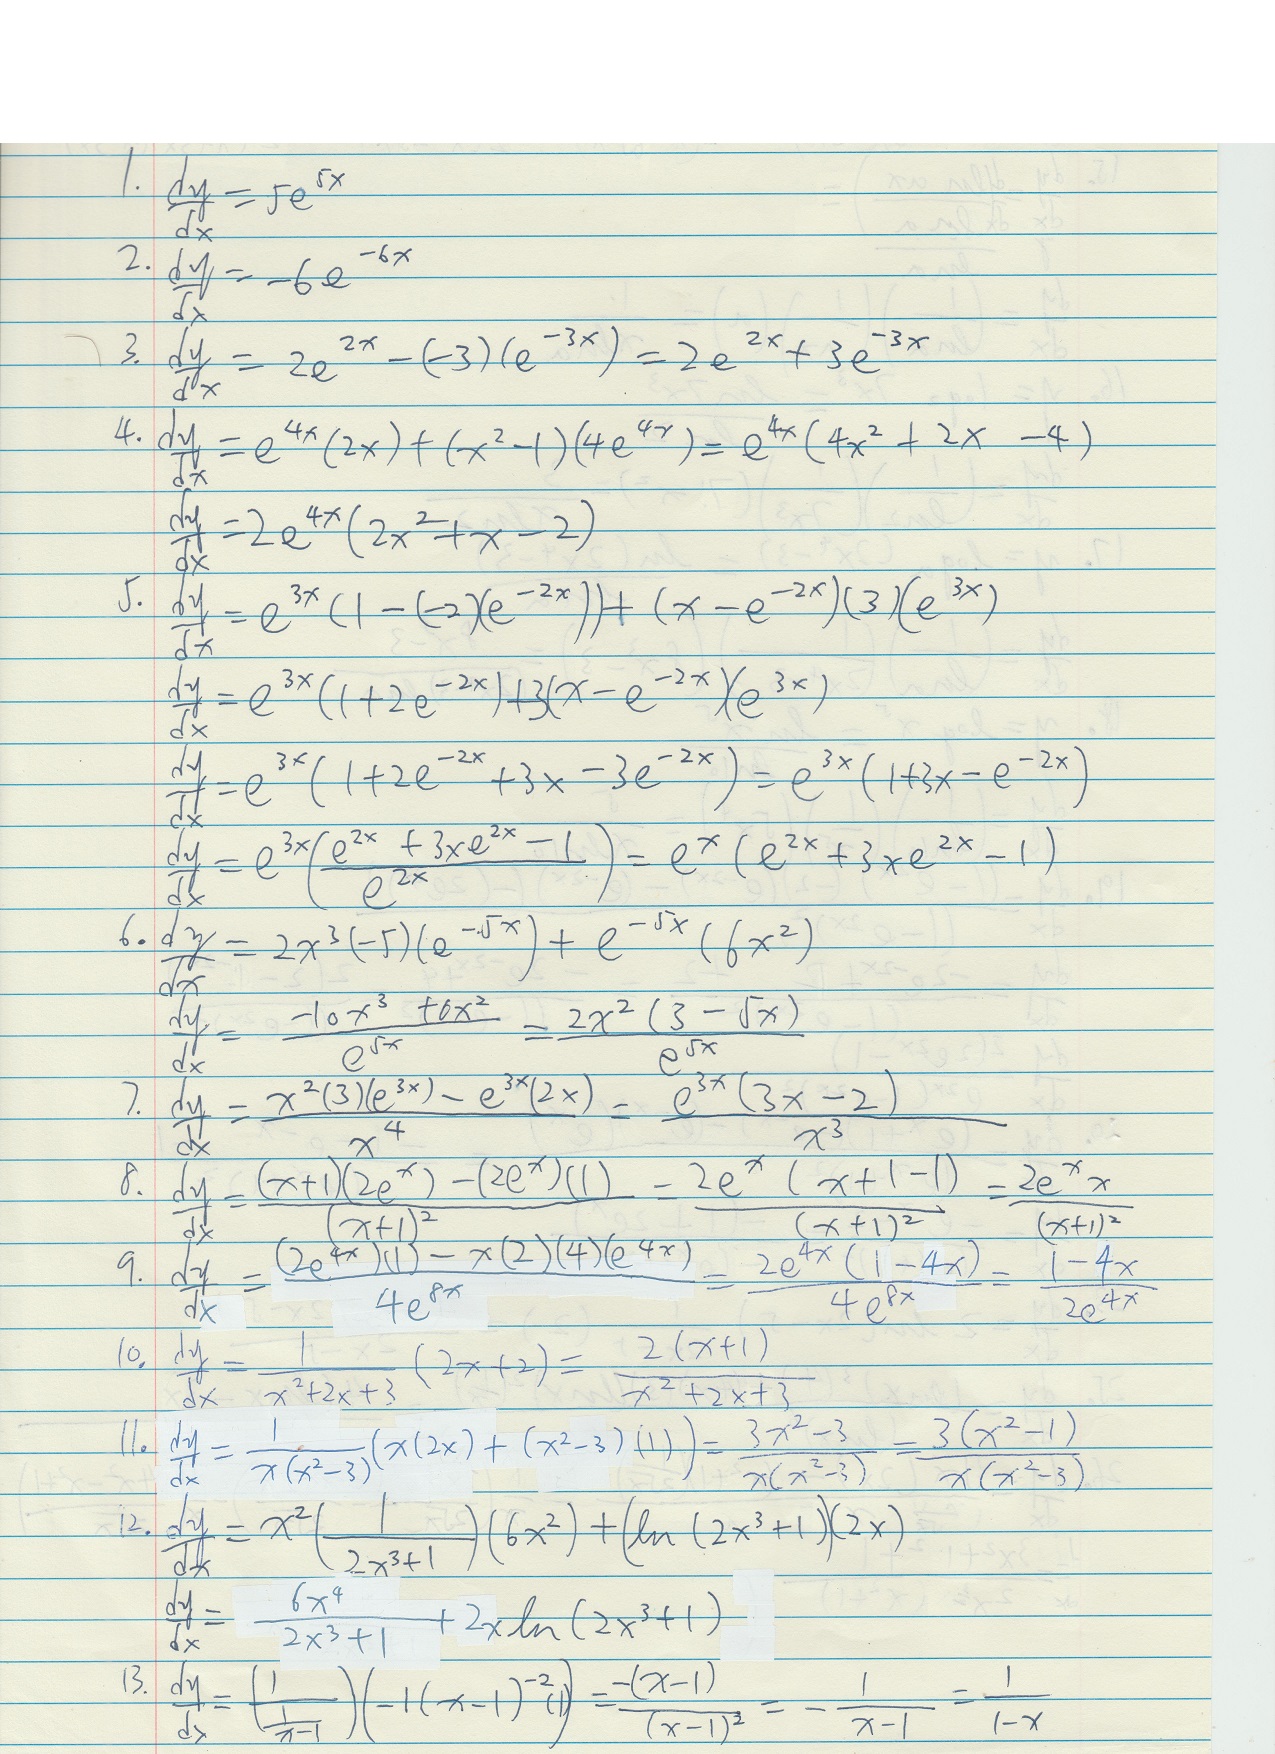 1. dy/dx = 5e^{5x}
2. dy/dx = -6e^{-6x}
3. dy/dx = 2e^{2x} - (-3)(e^{-3x}) = 2e^{2x} + 3e^{-3x}
4. dy/dx = e^{4x}(2x) + (x^2 - 1)(4e^{4x}) = e^{4x}(4x^2 + 2x - 4)
dy/dx = 2e^{4x}(2x^2 + x - 2)
5. dy/dx = e^{3x}(1 - (-2)(e^{-2x})) + (x - e^{-2x})(3)(e^{3x})
dy/dx = e^{3x}(1 + 2e^{-2x}) + 3(x - e^{-2x})(e^{3x})
dy/dx = e^{3x}(1 + 2e^{-2x} + 3x - 3e^{-2x}) = e^{3x}(1 + 3x - e^{-2x})
dy/dx = e^{3x}((e^{2x} + 3xe^{2x} - 1)/e^{2x}) = e^x(e^{2x} + 3xe^{2x} - 1)
6. dy/dx = 2x^3(-5)(e^{-5x}) + e^{-5x}(6x^2)
dy/dx = (-10x^3 + 6x^2)/e^{5x} = 2x^2(3 - 5x)/e^{5x}
7. dy/dx = (x^2(3)(e^{3x}) - e^{3x}(2x))/x^4 = e^{3x}(3x - 2)/x^3
8. dy/dx = ((x+1)(2e^x) - (2e^x)(1))/(x+1)^2 = 2e^x(x+1-1)/(x+1)^2 = 2e^x x/(x+1)^2
9. dy/dx = ((2e^{4x})(1) - x(2)(4)(e^{4x}))/4e^{8x} = 2e^{4x}(1-4x)/4e^{8x} = (1-4x)/2e^{4x}
10. dy/dx = 1/(x^2+2x+3) (2x+2) = 2(x+1)/(x^2+2x+3)
11. dy/dx = 1/(x(x^2-3)) (x(2x) + (x^2-3)(1)) = (3x^2-3)/(x(x^2-3)) = 3(x^2-1)/(x(x^2-3))
12. dy/dx = x^2(1/(2x^3+1))(6x^2) + (ln(2x^3+1))(2x)
dy/dx = 6x^4/(2x^3+1) + 2x ln(2x^3+1)
13. dy/dx = (1/(1/(x-1)))(-1(x-1)^{-2}(1)) = -(x-1)/(x-1)^2 = -1/(x-1) = 1/(1-x)